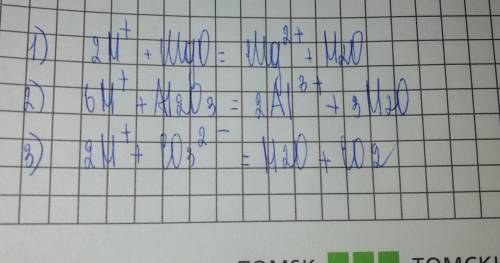 1) 2H⁺ + MgO = Mg²⁺ + H2O
2) 6H⁺ + Al2O3 = 2Al³⁺ + 3H2O
3) 2H⁺ + CO3²⁻ = H2O + CO2
ТОМСК ТОМСК